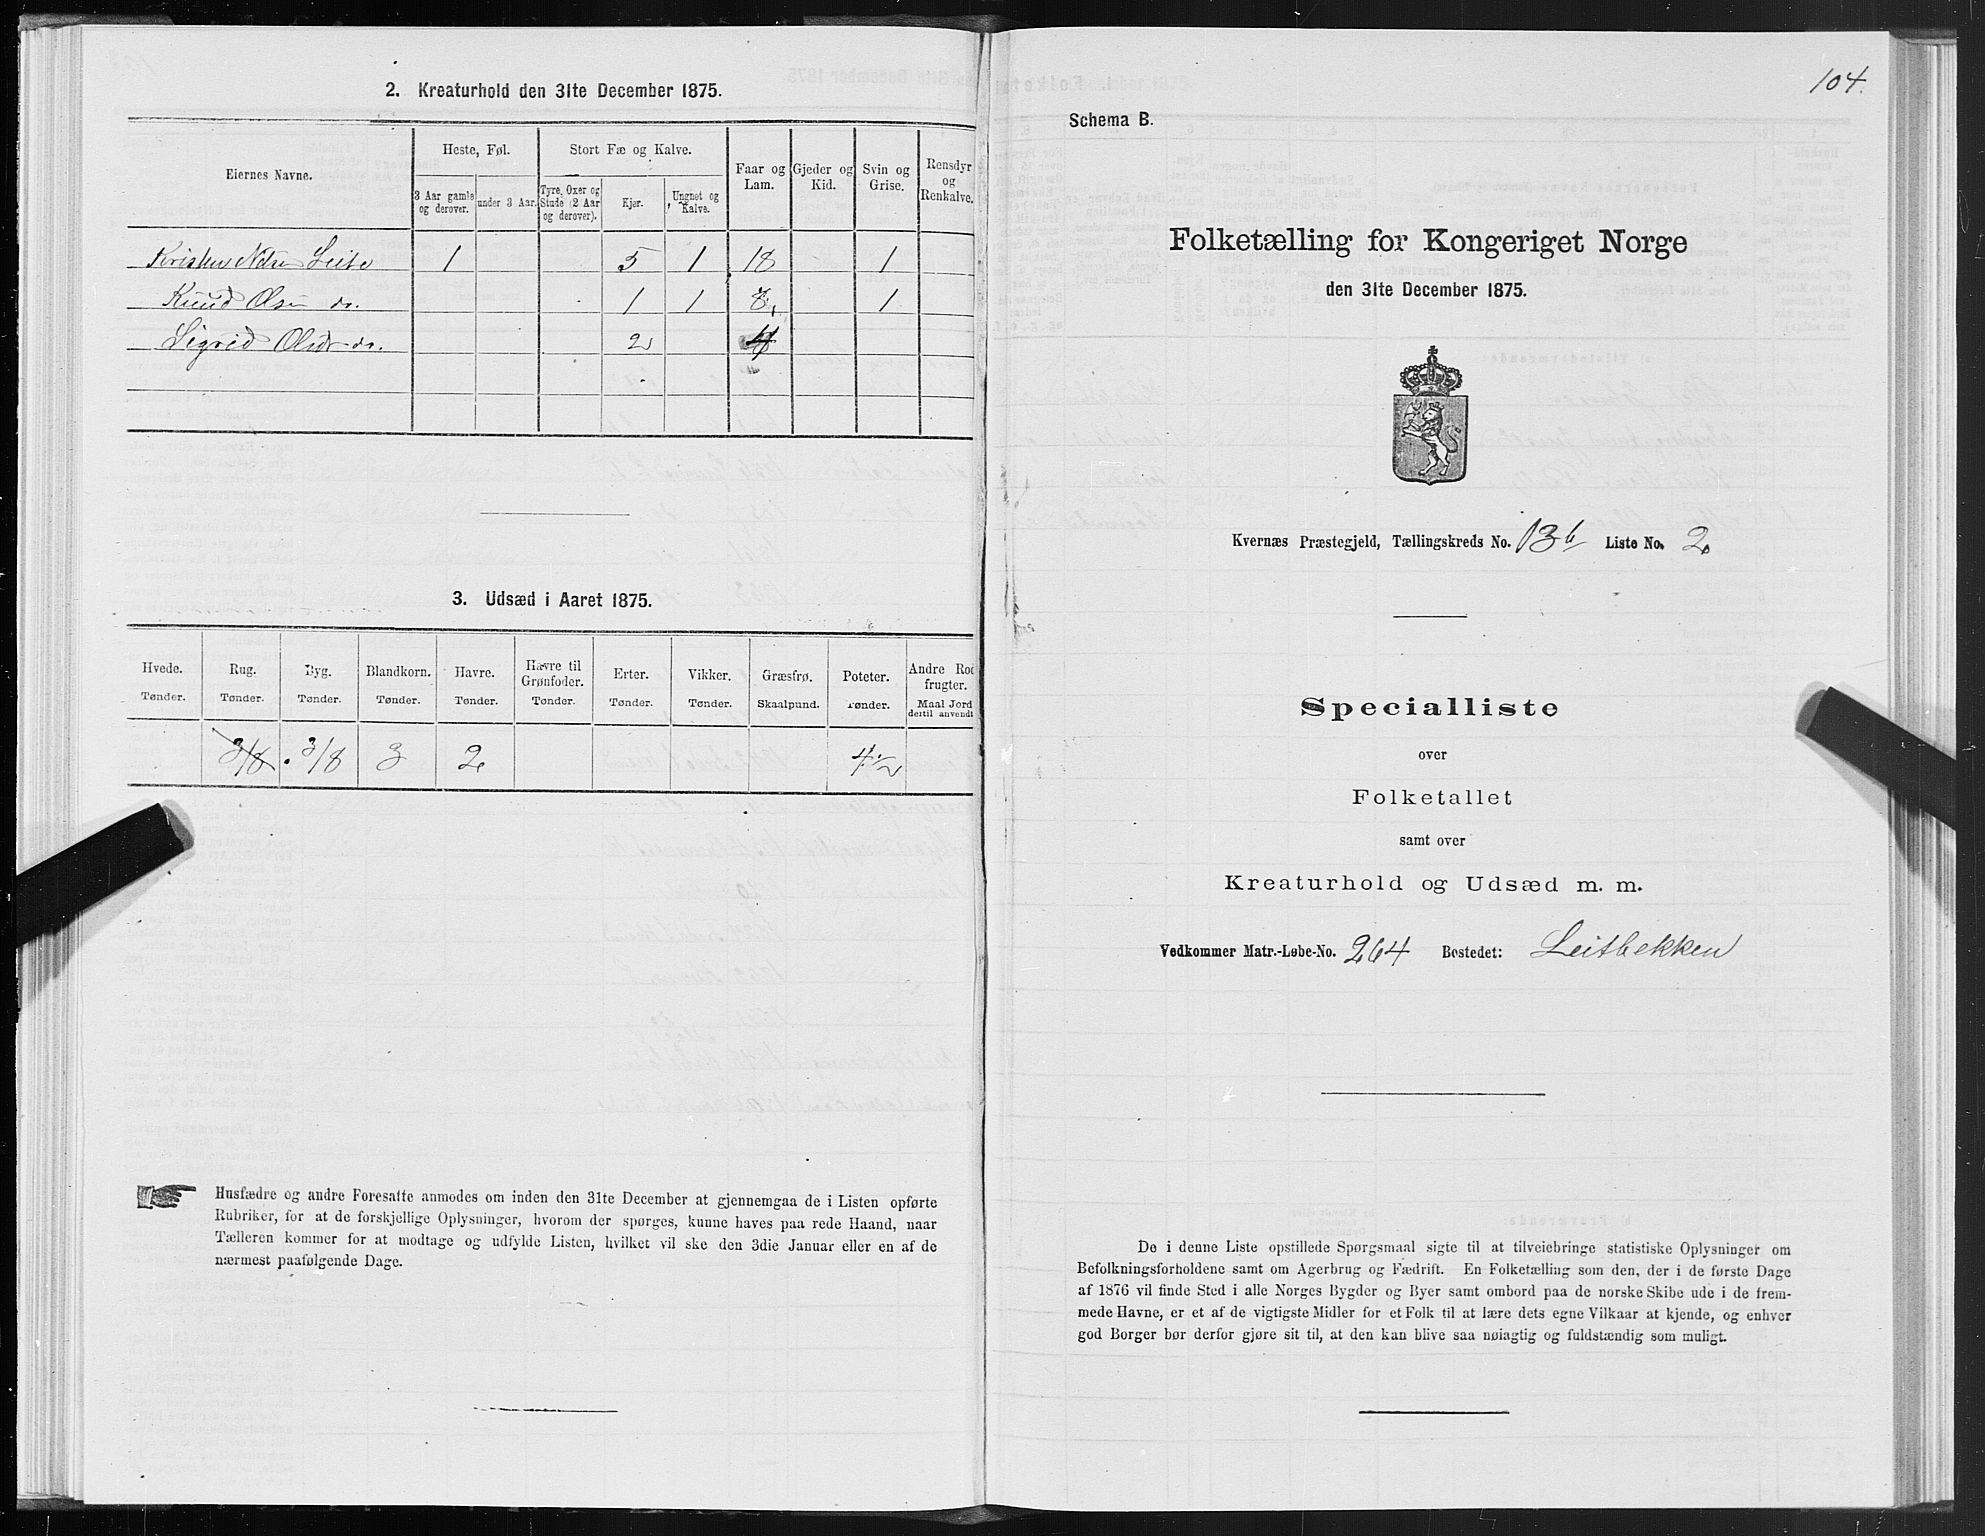 2. Kreaturhold den 31te December 1875.
Eiernes Navne.
Heste, Føl.
Stort Fæ og Kalve.
Faar og Lam.
Gjeder og Kid.
Svin og Grise.
Rensdyr og Renkalve.
3 Aar gamle og derover.
under 3 Aar.
Tyre, Oxer og Stude (2 Aar og derover).
Kjør.
Ungnet og Kalve.
Kristen Nilsen Leite 1 5 1 18 1
Knud Olsen do. 1 1 8 1
Sigrid Olsdr do. 2 4
3. Udsæd i Aaret 1875.
Hvede. Rug. Byg. Blandkorn. Havre. Havre til Grønfoder. Erter. Vikker. Græsfrø. Poteter. Andre Rodfrugter.
Tønder. Tønder. Tønder. Tønder. Tønder. Tønder. Tønder. Tønder. Skaalpund. Tønder. Maal Jord dertil anvendt
3/8 3/8 3 2 4 1/2
Husfædre og andre Foresatte anmodes om inden den 31te December at gjennemgaa de i Listen opførte
Rubriker, for at de forskjellige Oplysninger, hvorom der spørges, kunne haves paa rede Haand, naar
Tælleren kommer for at modtage og udfylde Listen, hvilket vil ske den 3die Januar eller en af de
nærmest paafølgende Dage.
104.
Schema B.
Folketælling for Kongeriget Norge
den 31te December 1875.
Kvernæs Præstegjeld, Tællingskreds No. 13b Liste No. 2
Specialliste
over
Folketallet
samt over
Kreaturhold og Udsæd m. m.
Vedkommer Matr.-Løbe-No. 264 Bostedet: Leitbekken
De i denne Liste opstillede Spørgsmaal sigte til at tilveiebringe statistiske Oplysninger om
Befolkningsforholdene samt om Agerbrug og Fædrift. En Folketælling som den, der i de første Dage
af 1876 vil finde Sted i alle Norges Bygder og Byer samt ombord paa de norske Skibe ude i de frem-
mede Havne, er et af de vigtigste Midler for et Folk til at lære dets egne Vilkaar at kjende, og enhver
god Borger bør derfor gjøre sit til, at den kan blive saa nøiagtig og fuldstændig som muligt.